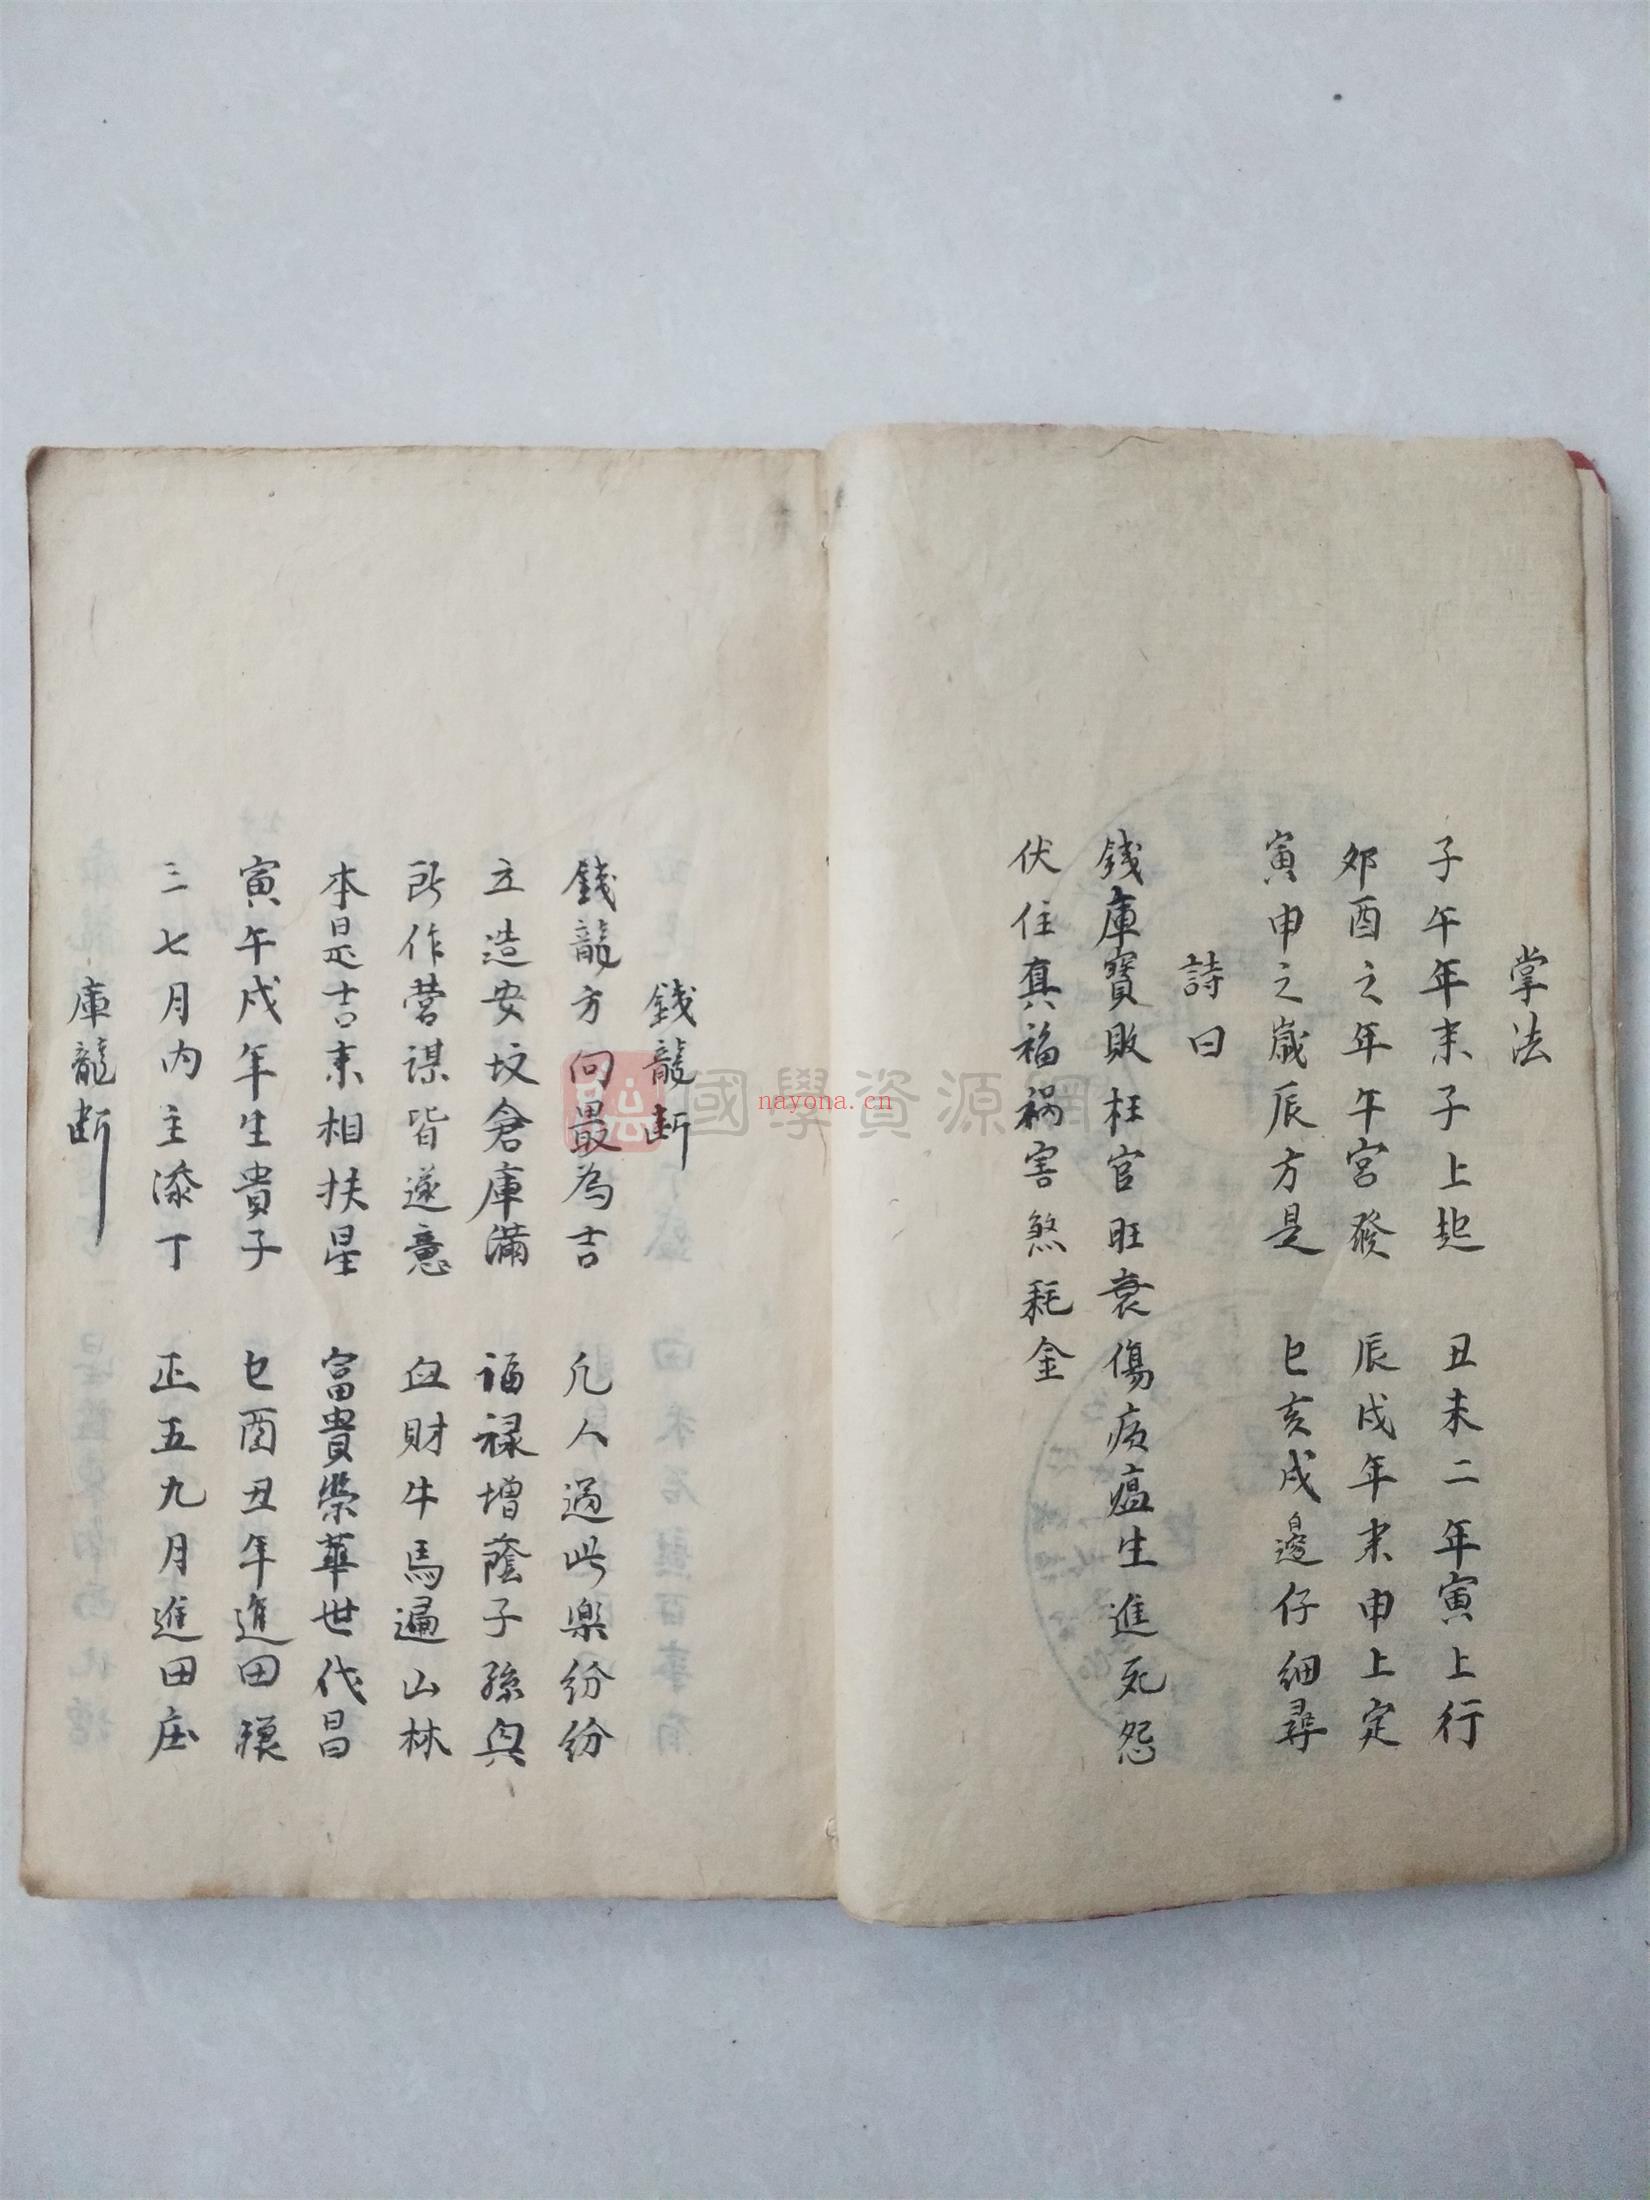 掌法
子午年来子上起　丑未二年寅上行
夘酉之年午宮發　辰戌年来申上定
寅申之歲辰方是　巳亥戌邊仔細尋
詩曰
錢庫寳敗枉官旺衰傷病瘟生進死怨
伏住真福祸害煞耗金
錢龍断
錢龍方向最為吉　凢人遇此樂紛紛
立造安坟倉庫滿　福禄增蔭子孫興
所作营谋皆遂意　血財牛馬遍山林
本是吉来相扶星　富貴榮華世代昌
寅午戌年生貴子　巳酉丑年進田
三七月内主添丁　正五九月進田庄
庫龍断
國學資源網
nayona.cn